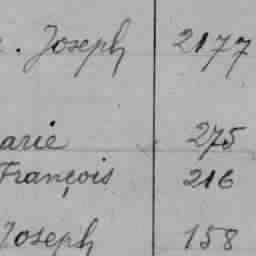 . Joseph 2177
arie 275
François 216
Joseph 158